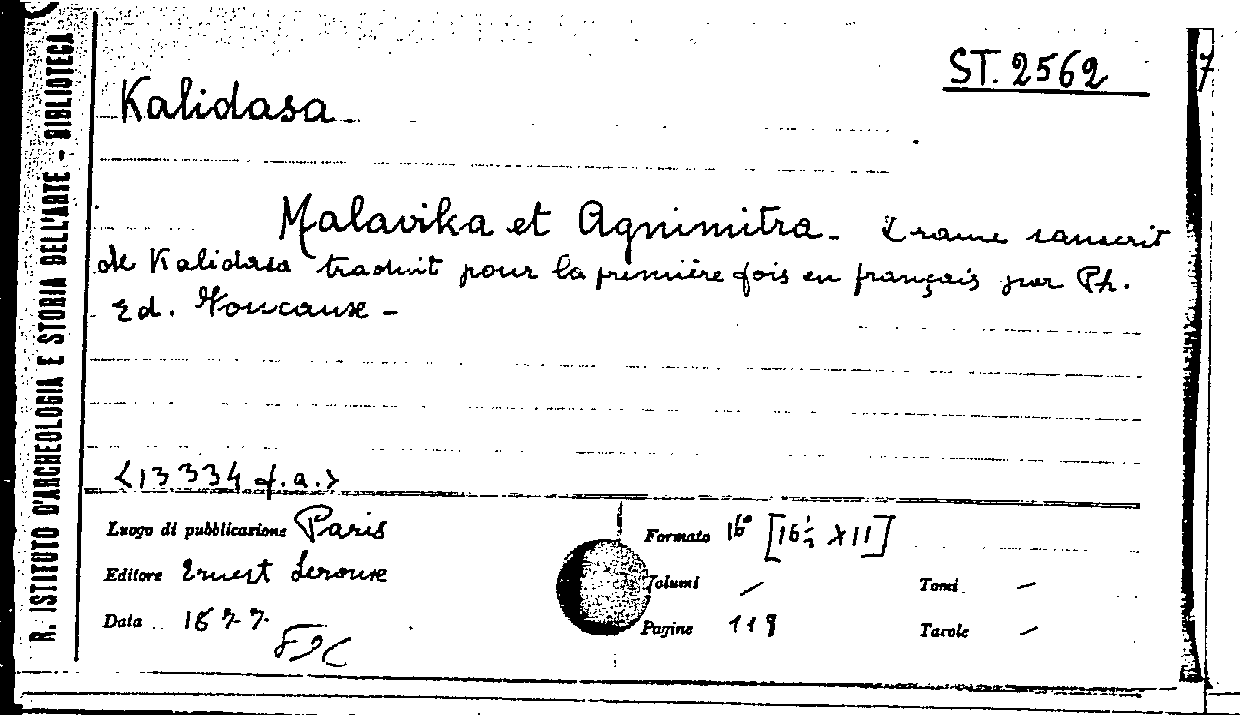 R. ISTITUTO D'ARCHEOLOGIA E STORIA DELL'ARTE - BIBLIOTECA
ST. 2562
7
Kalidasa
Malavika et Agnimitra. Drame sanscrit
de Kalidasa traduit pour la première fois en français par Ph.
Ed. Foucaux -
<13334 f.a.>
Luogo di pubblicazione Paris
Formato 16° [16½ X 11]
Editore Ernest Leroux
Volumi -
Tomi -
Data 1877
Pagine 118
Tavole -